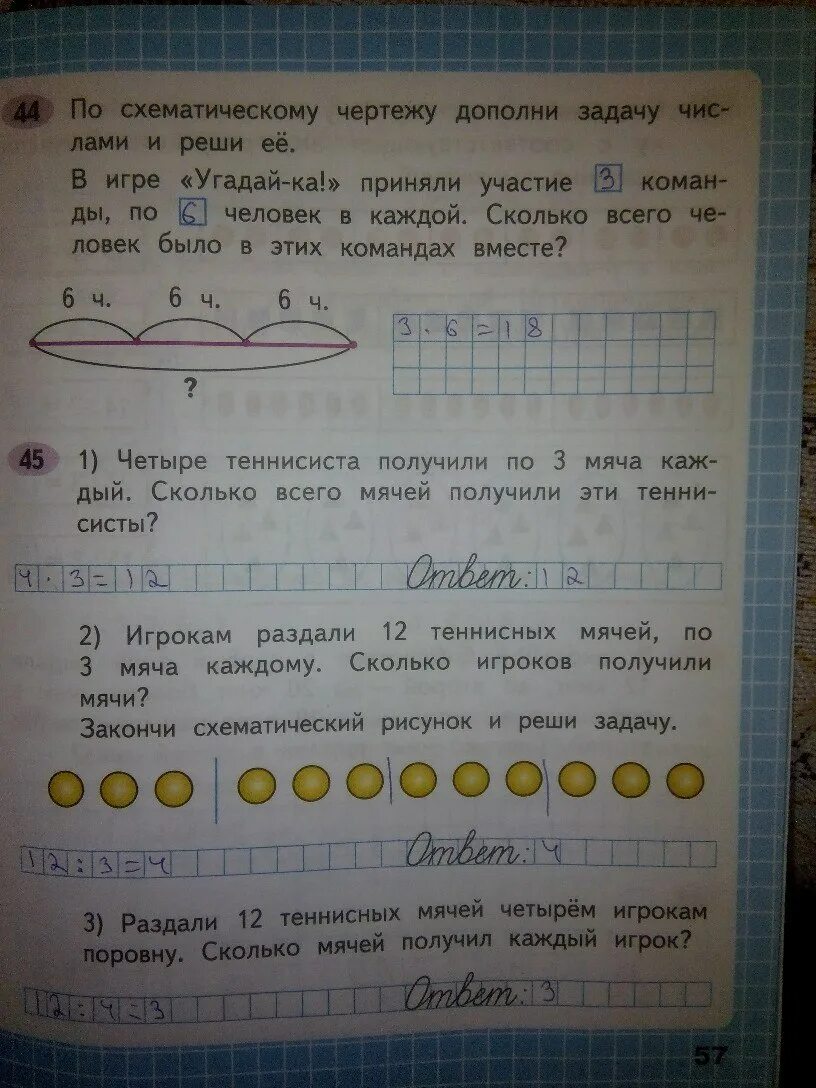 44 По схематическому чертежу дополни задачу чис-
лами и реши её.
В игре «Угадай-ка!» приняли участие 3 коман-
ды, по 6 человек в каждой. Сколько всего че-
ловек было в этих командах вместе?
6 ч. 6 ч. 6 ч.
3·6=18
?
45 1) Четыре теннисиста получили по 3 мяча каж-
дый. Сколько всего мячей получили эти тенни-
систы?
4·3=12 Ответ: 12
2) Игрокам раздали 12 теннисных мячей, по
3 мяча каждому. Сколько игроков получили
мячи?
Закончи схематический рисунок и реши задачу.
12:3=4 Ответ: 4
3) Раздали 12 теннисных мячей четырём игрокам
поровну. Сколько мячей получил каждый игрок?
12:4=3 Ответ: 3
57